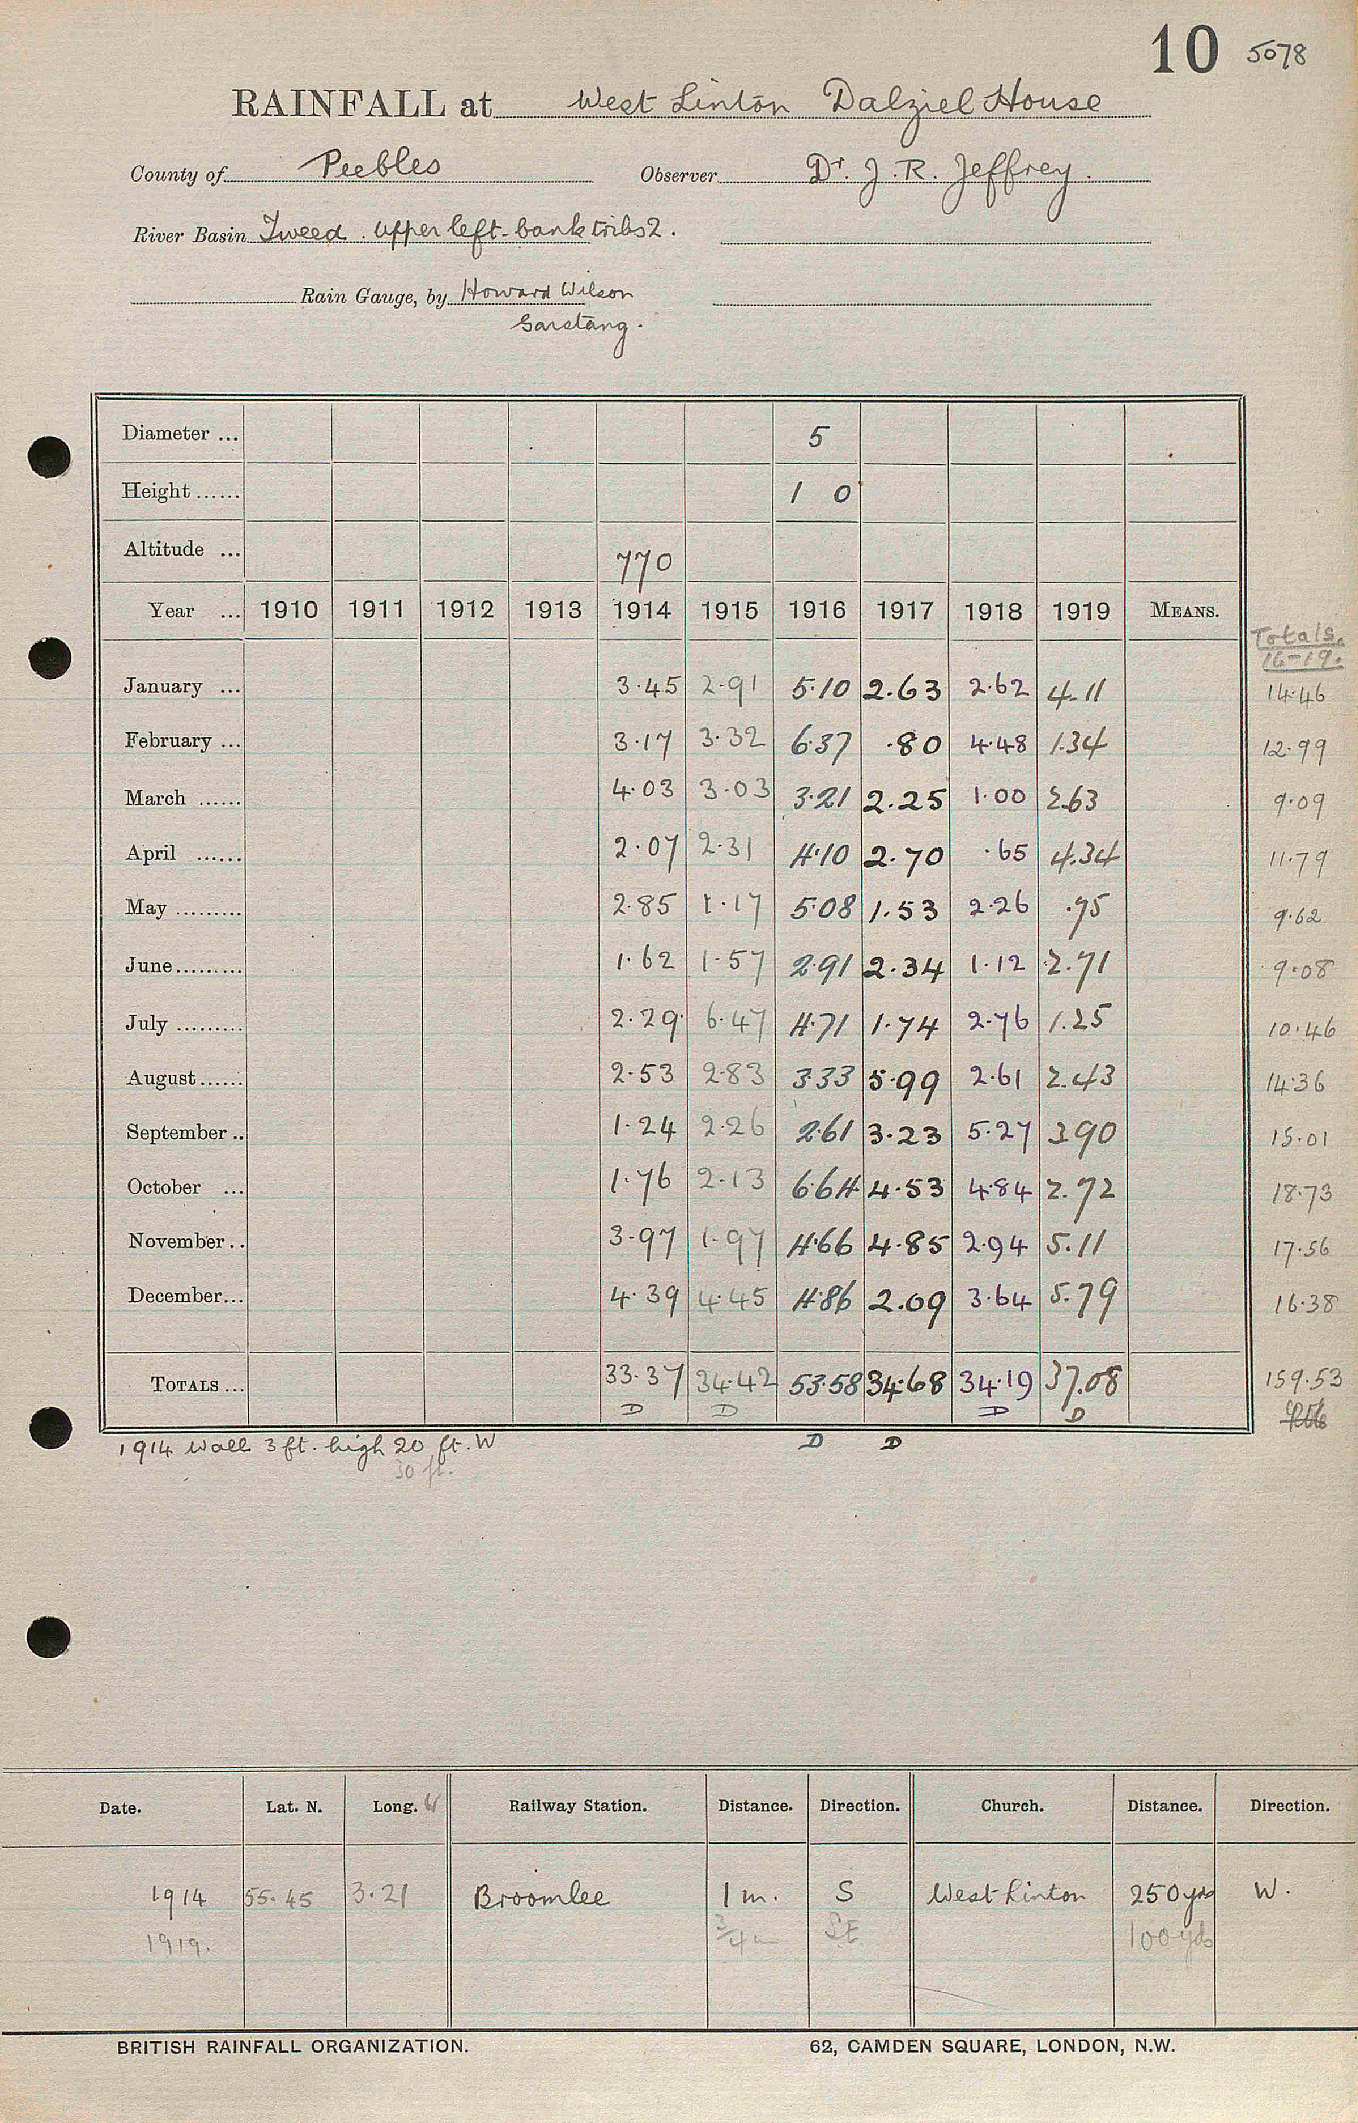 10 5078
RAINFALL at West Linton Dalziel House
County of Peebles Observer Dr. J. R. Jeffrey.
River Basin Tweed. Upper left-bank tribs 2.
Rain Gauge, by Howard Wilson
Garstang.
Diameter ... 5
Height ...... 1 0
Altitude ... 770
Year ... 1910 1911 1912 1913 1914 1915 1916 1917 1918 1919 MEANS.
Totals.
16-19.
January ... 3.45 2.91 5.10 2.63 2.62 4.11 14.46
February ... 3.17 3.32 6.37 .80 4.48 1.34 12.99
March ...... 4.03 3.03 3.21 2.25 1.00 2.63 9.09
April ...... 2.07 2.31 4.10 2.70 .65 4.34 11.79
May ......... 2.85 1.17 5.08 1.53 2.26 .75 9.62
June ......... 1.62 1.57 2.91 2.34 1.12 2.71 9.08
July ......... 2.29 6.47 4.71 1.74 2.76 1.25 10.46
August ...... 2.53 2.83 3.33 5.99 2.61 2.43 14.36
September .. 1.24 2.26 2.61 3.23 5.27 3.90 15.01
October ... 1.76 2.13 6.64 4.53 4.84 2.72 18.73
November .. 3.97 1.97 4.66 4.85 2.94 5.11 17.56
December ... 4.39 4.45 4.86 2.09 3.64 5.79 16.38
TOTALS ... 33.37 34.42 53.58 34.68 34.19 37.08 159.53
D D D D
1914 Wall 3 ft. high 20 ft. W D D
30 ft.
Date. Lat. N. Long. W Railway Station. Distance. Direction. Church. Distance. Direction.
1914 55.45 3.21 Broomlee 1 m. S West Linton 250 yds W.
1919. 3/4 m SE 100 yds
BRITISH RAINFALL ORGANIZATION. 62, CAMDEN SQUARE, LONDON, N.W.